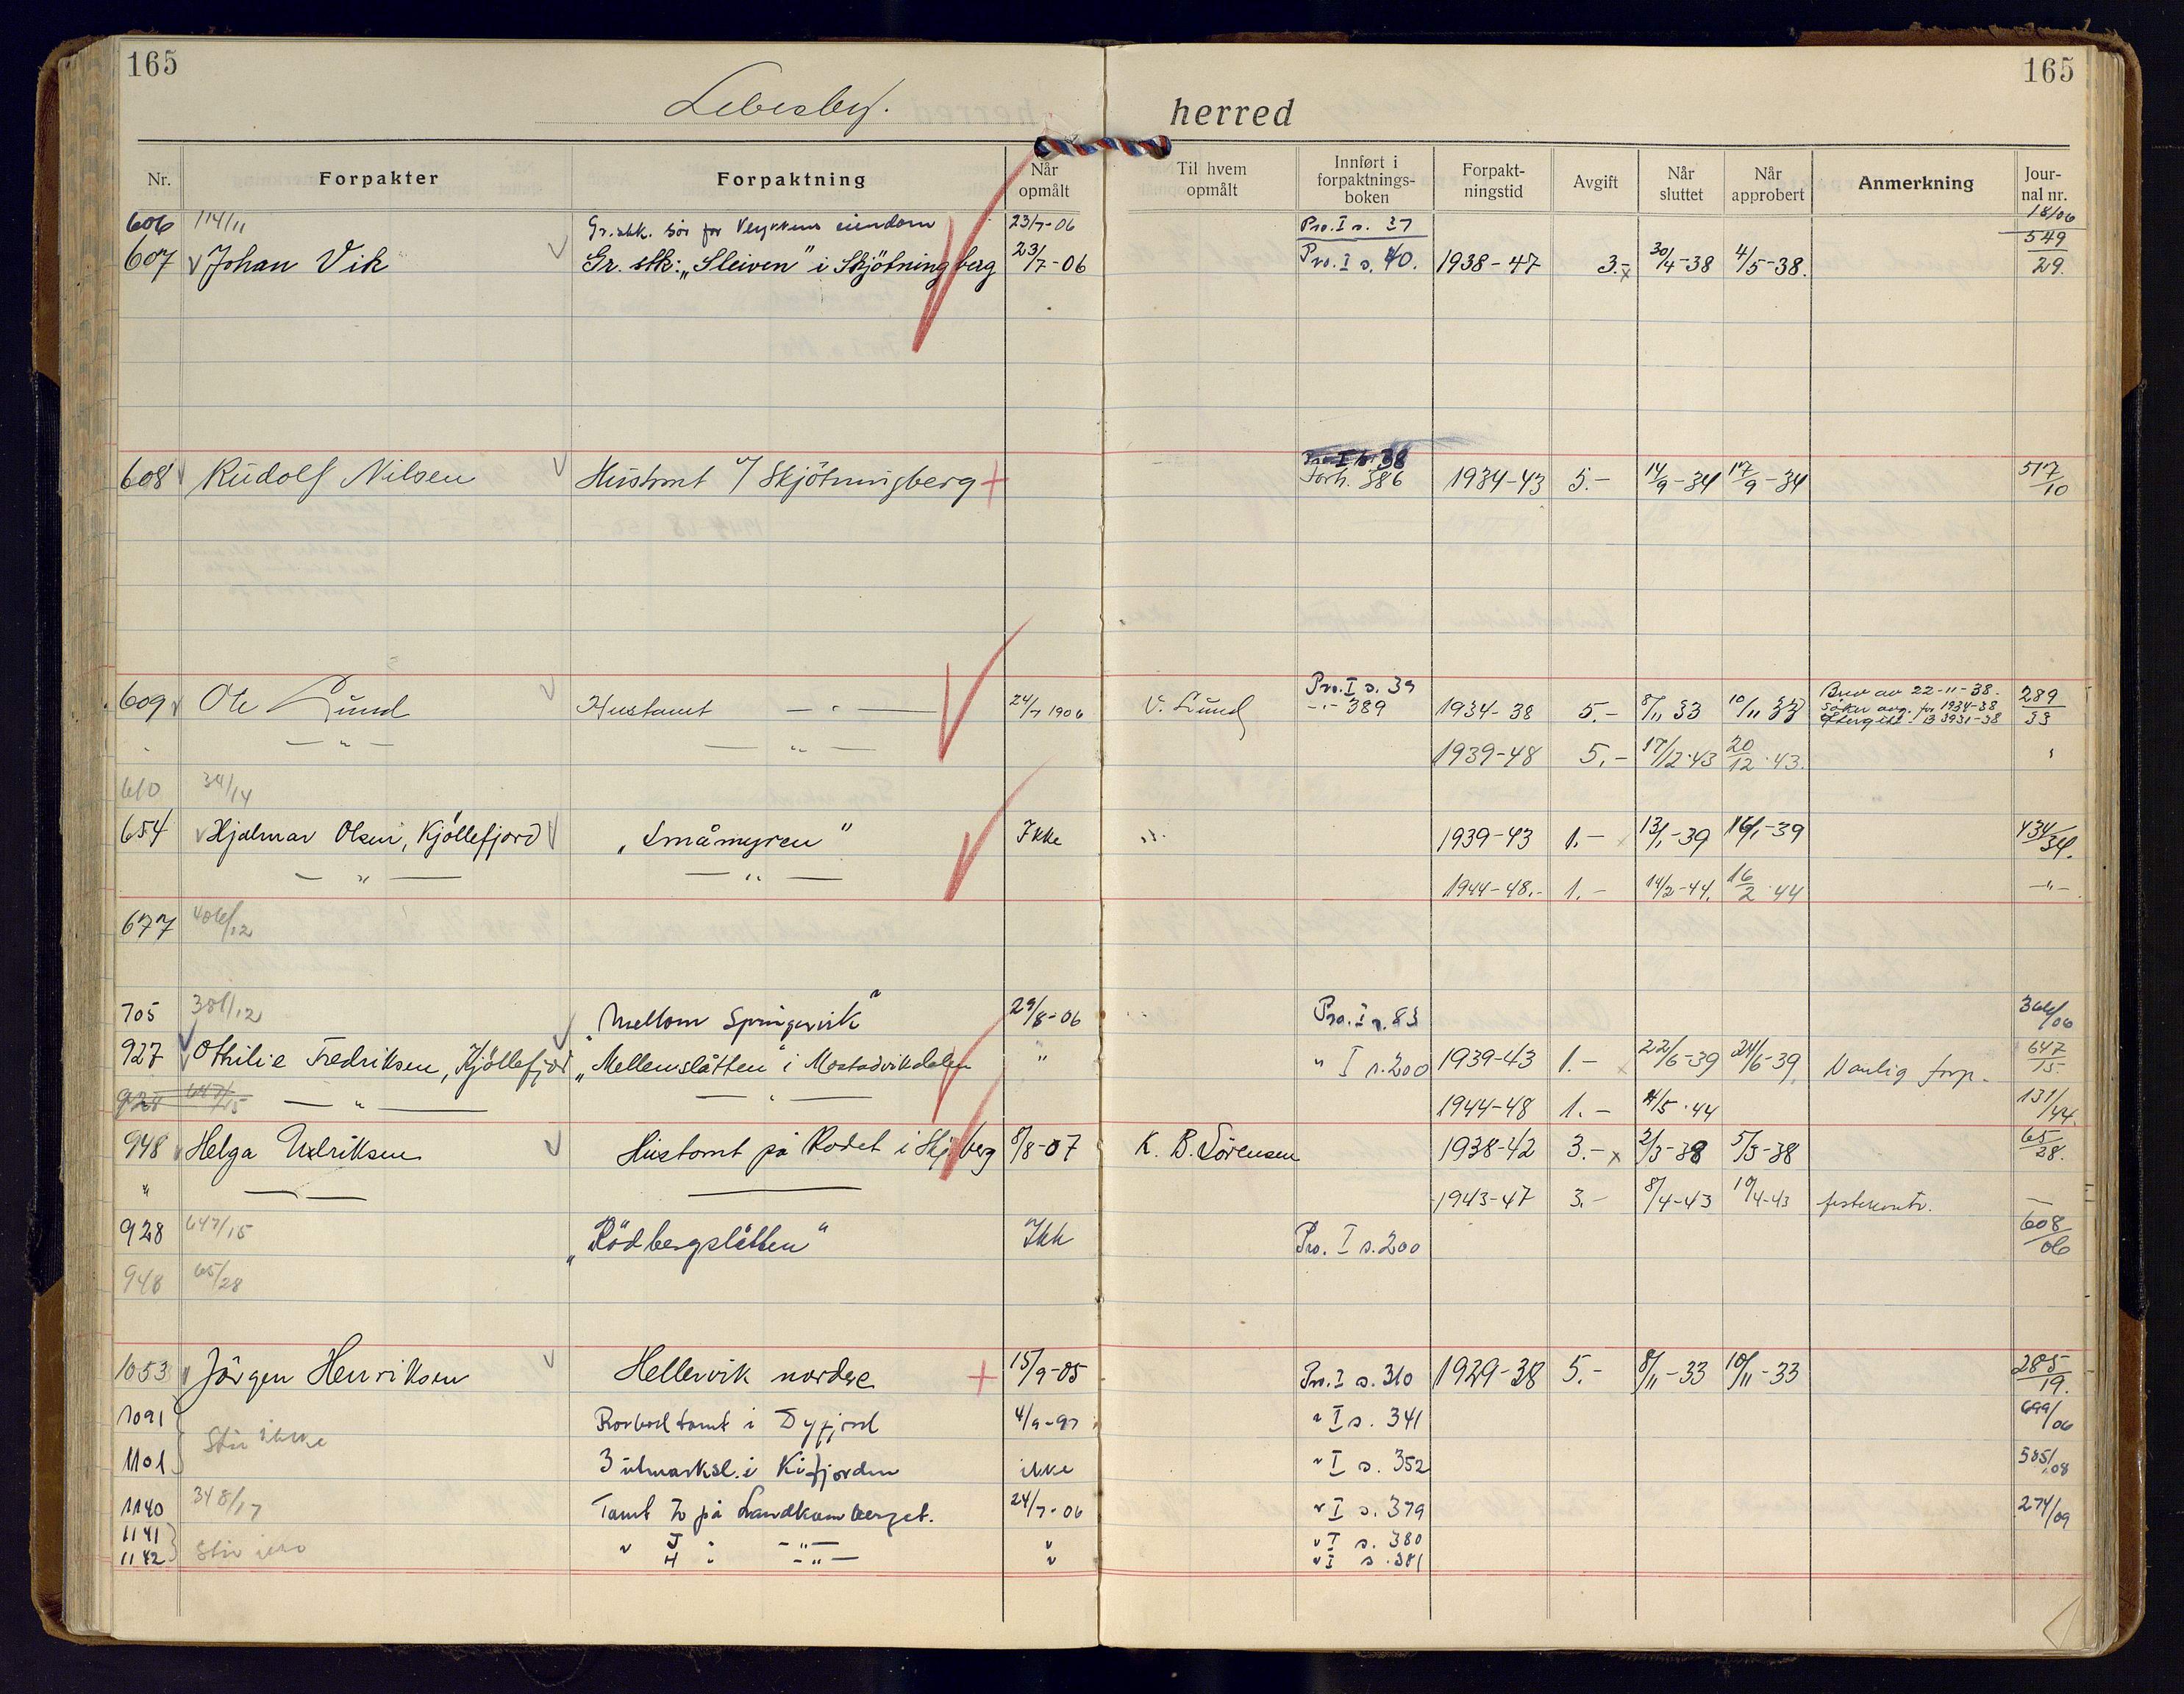 165 165
Lebesby. herred
Nr. Forpakter Forpaktning Når opmålt Til hvem opmålt Innført i forpaktnings-boken Forpakt-ningstid Avgift Når sluttet Når approbert Anmerkning Jour-nal nr.
606 114/11 Gr.stk. sör for eiendom 23/7-06 Pro. I s. 37 18/06
607 Johan Vik Gr. stk: „Sleiven" i Skjötningberg 23/7-06 Pro. I s. 40. 1938-47 3.- 30/4-38 4/5-38. 549/29.
608 Rudolf Nilsen Hustomt i Skjötningberg + Pro I s. 38
Forh. 386 1934-43 5.- 14/9-34 17/9-34 517/10
609 Ole Lund Hustomt — " — 24/7 1906 V. Lund Pro. I s. 39
-"- 389 1934-38 5.- 8/11 33 10/11 33 Brev av 22-11-38. 289/33
— " — — " — 1939-48 5.- 17/12-43 20/12-43. "
610 34/14
654 Hjalmar Olsen, Kjöllefjord „Småmyren" Ikke 1939-43 1.- 13/1-39 16/1-39 434/34.
— " — — " — 1944-48.- 1.- 14/2-44. 16/2-44 -"-
677 406/12
705 381/12 „Mellom Springvik" 29/8-06 Pro. I s. 83 366/06
927 Othilie Fredriksen, Kjöllefjord „Mellemslåtten" i Mostadvikdalen " " I s. 200 1939-43 1.- 22/6-39 24/6-39 Vanlig forp. 647/15
928 647/15 — " — — " — 1944-48 1.- 4/5-44 131/44.
948 Helga Hustomt på Rodet i Skj.berg 8/8-07 K. B. Sörensen 1938-42 3.- 2/3-38 5/3-38 65/28.
" — — 1943-47 3.- 8/4-43 19/4-43 festekontr. —
928 647/15 „Rödbergslåtten" Ikk Pro. I s. 200 608/06
948 65/28
1053 Jörgen Henriksen Hellevik nordre + 15/9-05 Pro. I s. 310 1929-38 5.- 8/11-33 10/11-33 285/19.
1091 Står ikke Rorbod tomt i Dyfjord 4/9-97 " I s. 341 699/06
1101 3 utmarksl. i Kifjorden ikke " I s. 352 585/08
1140 348/17 Tomt på Landkomberget. 24/7-06 " I s. 379 274/09
1141 Står ikke " J " — " — " " I s. 380
1142 H " — " — " " I s. 381